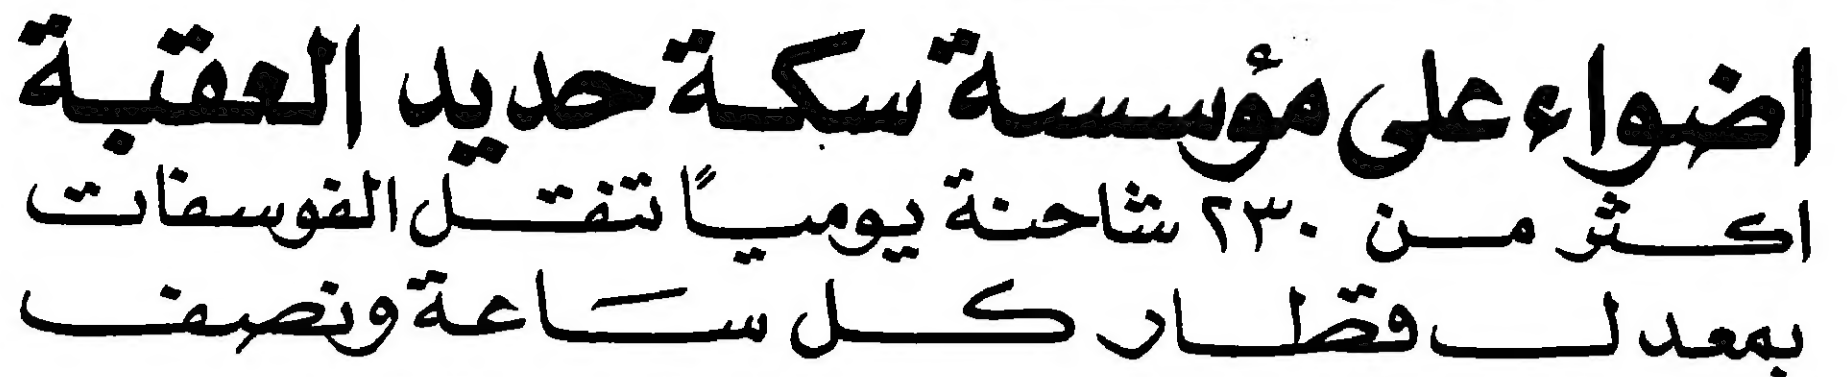 اضواء على مؤسسة سكة حديد العقبة
اكثر من ٢٣٠ شاحنة يومياً تنقل الفوسفات
بمعدل قطار كل ساعة ونصف